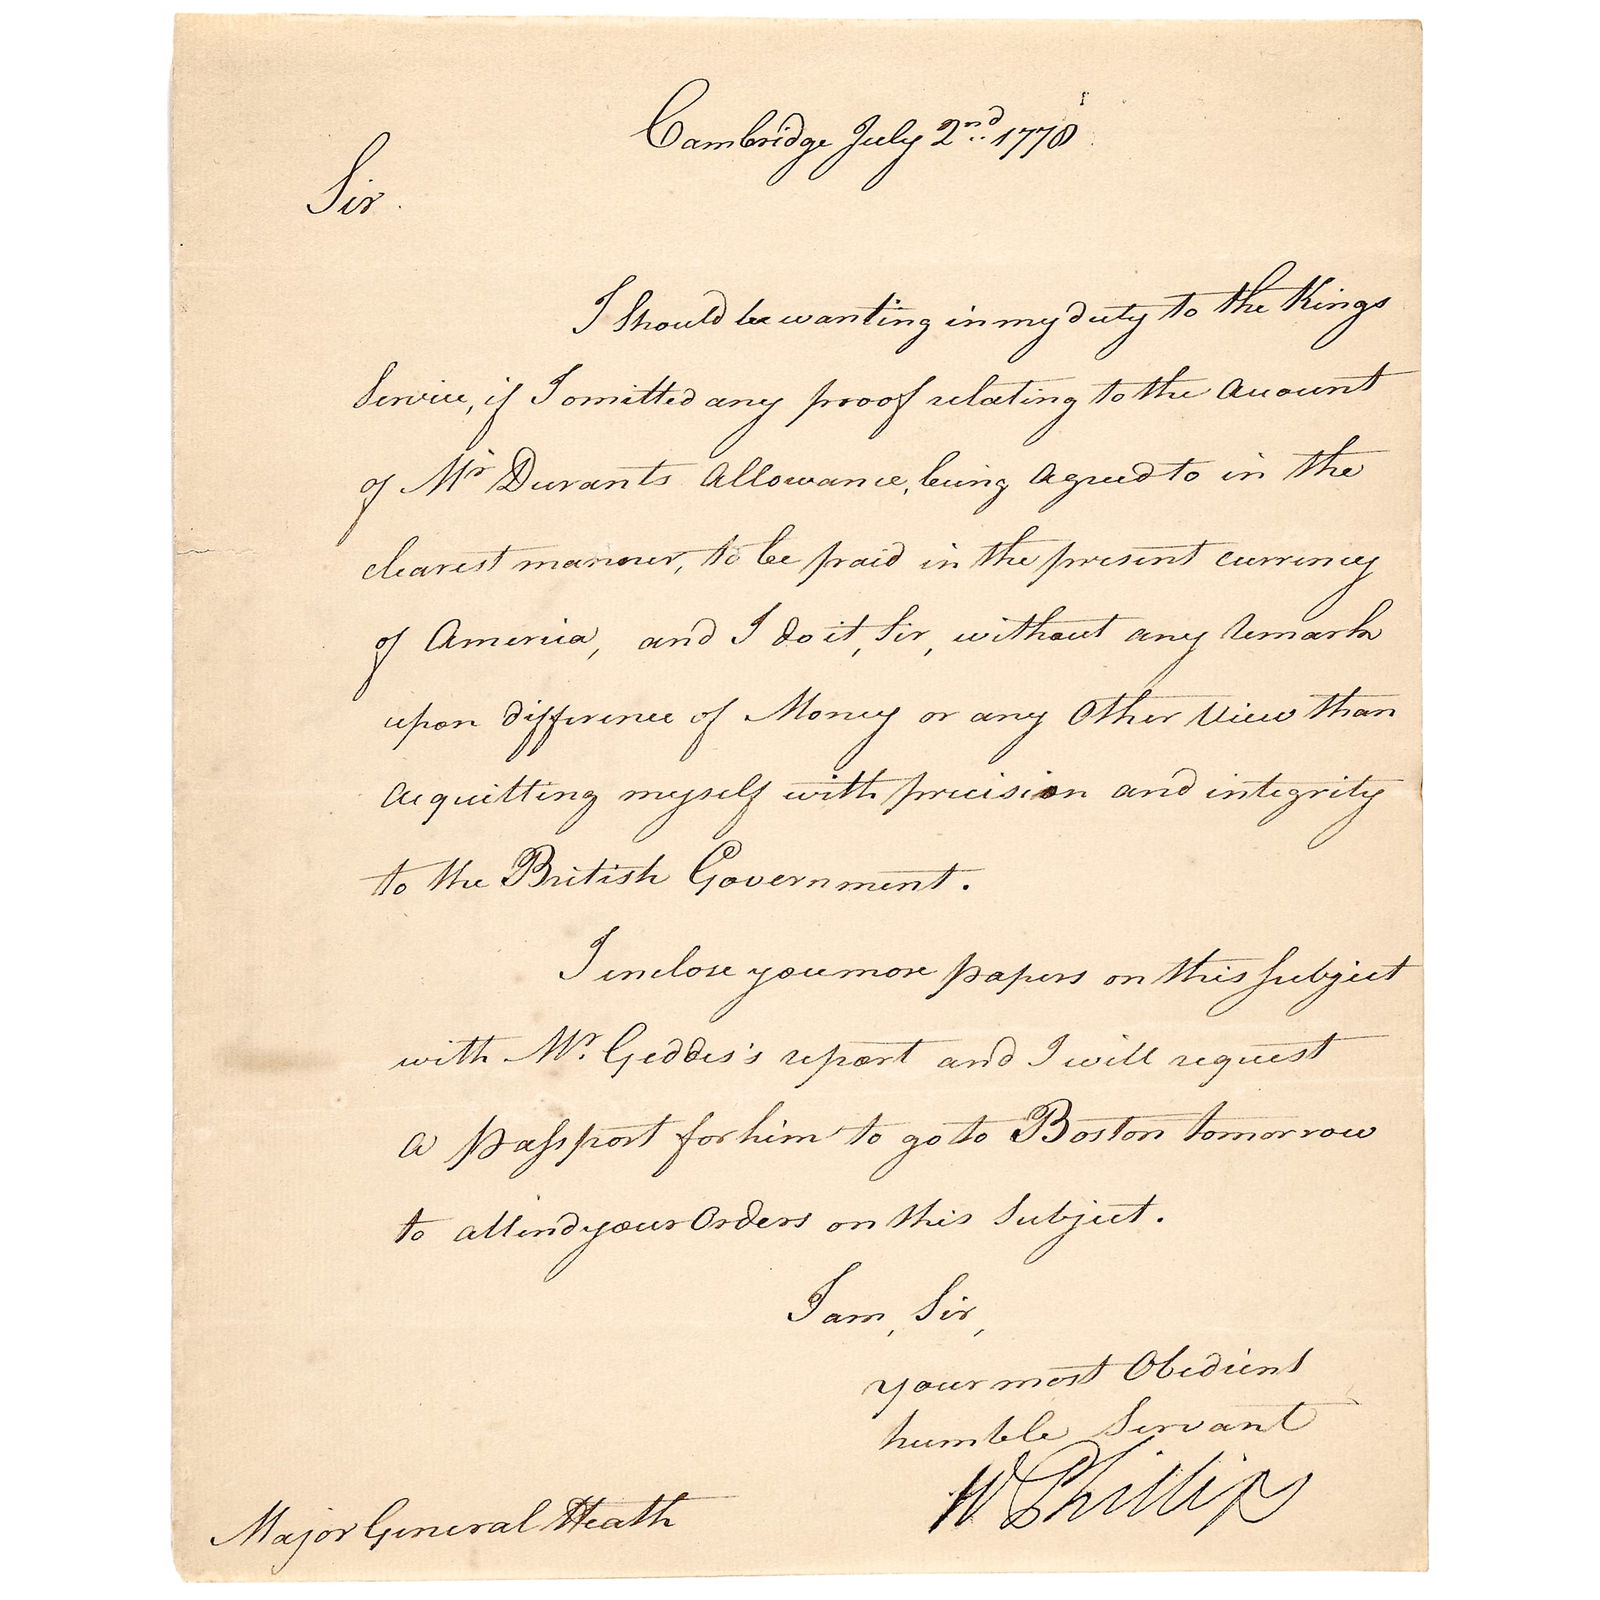 Cambridge July 2nd 1778
Sir.
I should be wanting in my duty to the Kings
Service, if I omitted any proof relating to the Account
of Mr Durants Allowance, being Agreed to in the
clearest manner, to be paid in the present currency
of America, and I do it, Sir, without any remark
upon difference of Money or any Other View than
Acquitting myself with precision and integrity
to the British Government.
I inclose you more papers on this Subject
with Mr. Geddes's report and I will request
a passport for him to go to Boston tomorrow
to attend your Orders on this Subject.
I am, Sir,
your most Obedient
humble Servant
W Phillips
Major General Heath